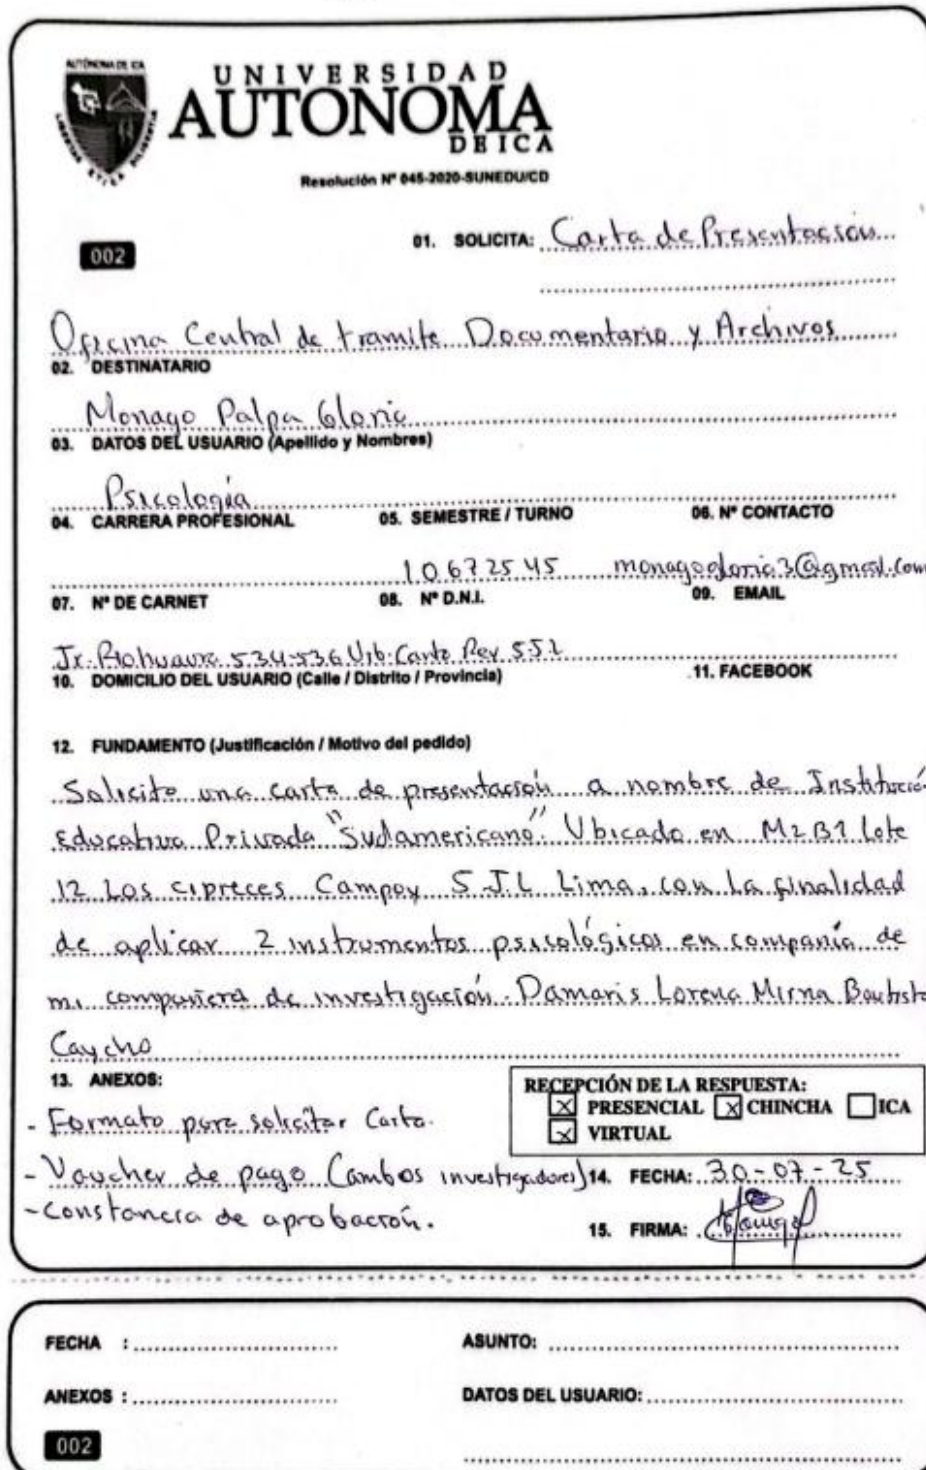 AUTÓNOMA DE ICA
UNIVERSIDAD
AUTÓNOMA
DE ICA
Resolución N° 045-2020-SUNEDU/CD
002
01. SOLICITA: Carta de Presentación
Oficina Central de tramite Documentario y Archivos
02. DESTINATARIO
Monago Palpa Gloria
03. DATOS DEL USUARIO (Apellido y Nombres)
Psicología
04. CARRERA PROFESIONAL 05. SEMESTRE / TURNO 06. N° CONTACTO
10672545 monagogloria3@gmail.com
07. N° DE CARNET 08. N° D.N.I. 09. EMAIL
Jr. 534-536 Urb. Canto Rey
10. DOMICILIO DEL USUARIO (Calle / Distrito / Provincia) 11. FACEBOOK
12. FUNDAMENTO (Justificación / Motivo del pedido)
Solicito una carta de presentación a nombre de Institució
Educativa Privada "Sudamericano". Ubicado en Mz B1 Lote
12 Los cipreces Campoy S.J.L Lima, con La finalidad
de aplicar 2 instrumentos psicológicos en compania de
mi compañera de investigación. Damaris Lorena Mirna Bautista
Caycho
13. ANEXOS:
RECEPCIÓN DE LA RESPUESTA:
X PRESENCIAL X CHINCHA ICA
X VIRTUAL
- Formato para solicitar Carta.
- Voucher de pago (ambos investigadores) 14. FECHA: 30-07-25
- Constancia de aprobación.
15. FIRMA:
FECHA : ASUNTO:
ANEXOS : DATOS DEL USUARIO:
002